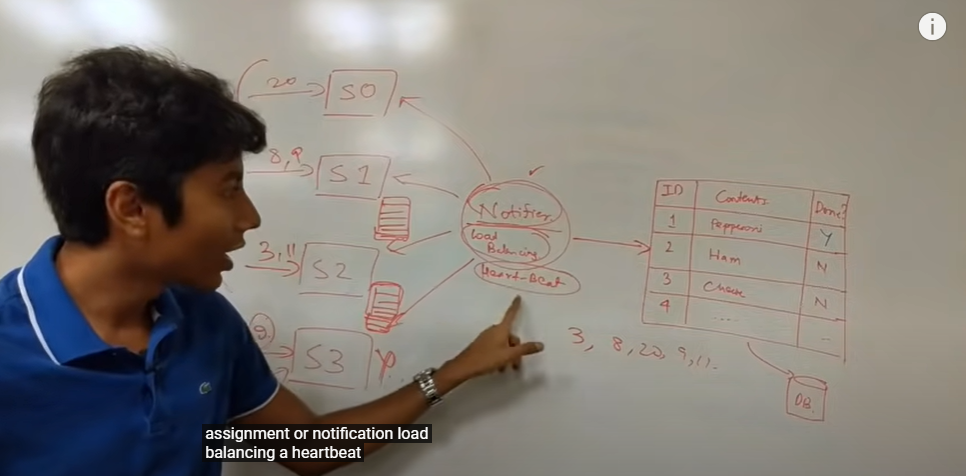 20
S0
8, 9
S1
3, 11
S2
S3
Notifier
Load
Balancing
Heart-Beat
ID Contents Done?
1 Pepperoni Y
2 Ham N
3 Cheese N
4 .... -
3, 8, 20, 9, 11.
DB.
assignment or notification load
balancing a heartbeat
i